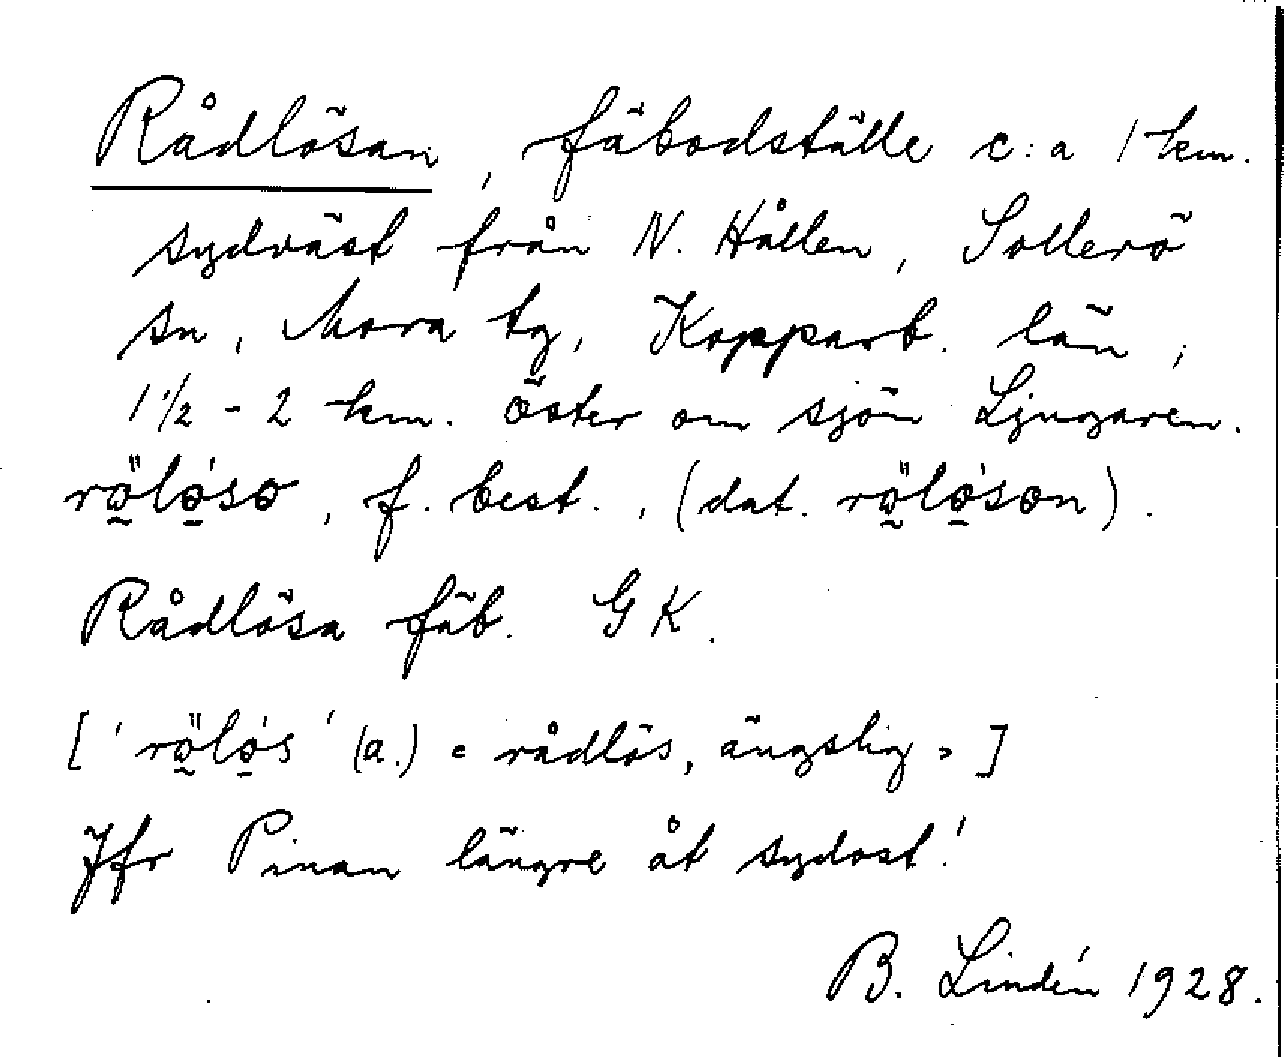 Rådlösan, fäbodställe c:a 1 km.
sydväst från N. Hållen, Sollerö
sn, Mora tg, Kopparb. län,
1 1/2 - 2 km. öster om sjön Ljugaren.
rö̰̋lö̱́so, f. best., (dat. rö̰̋lö̱́son).
Rådlösa fäb. GK.
[' rö̰̋lö̱́s ' (a.) « rådlös, ängslig » ]
Jfr Pinan längre åt sydost!
B. Lindén 1928.